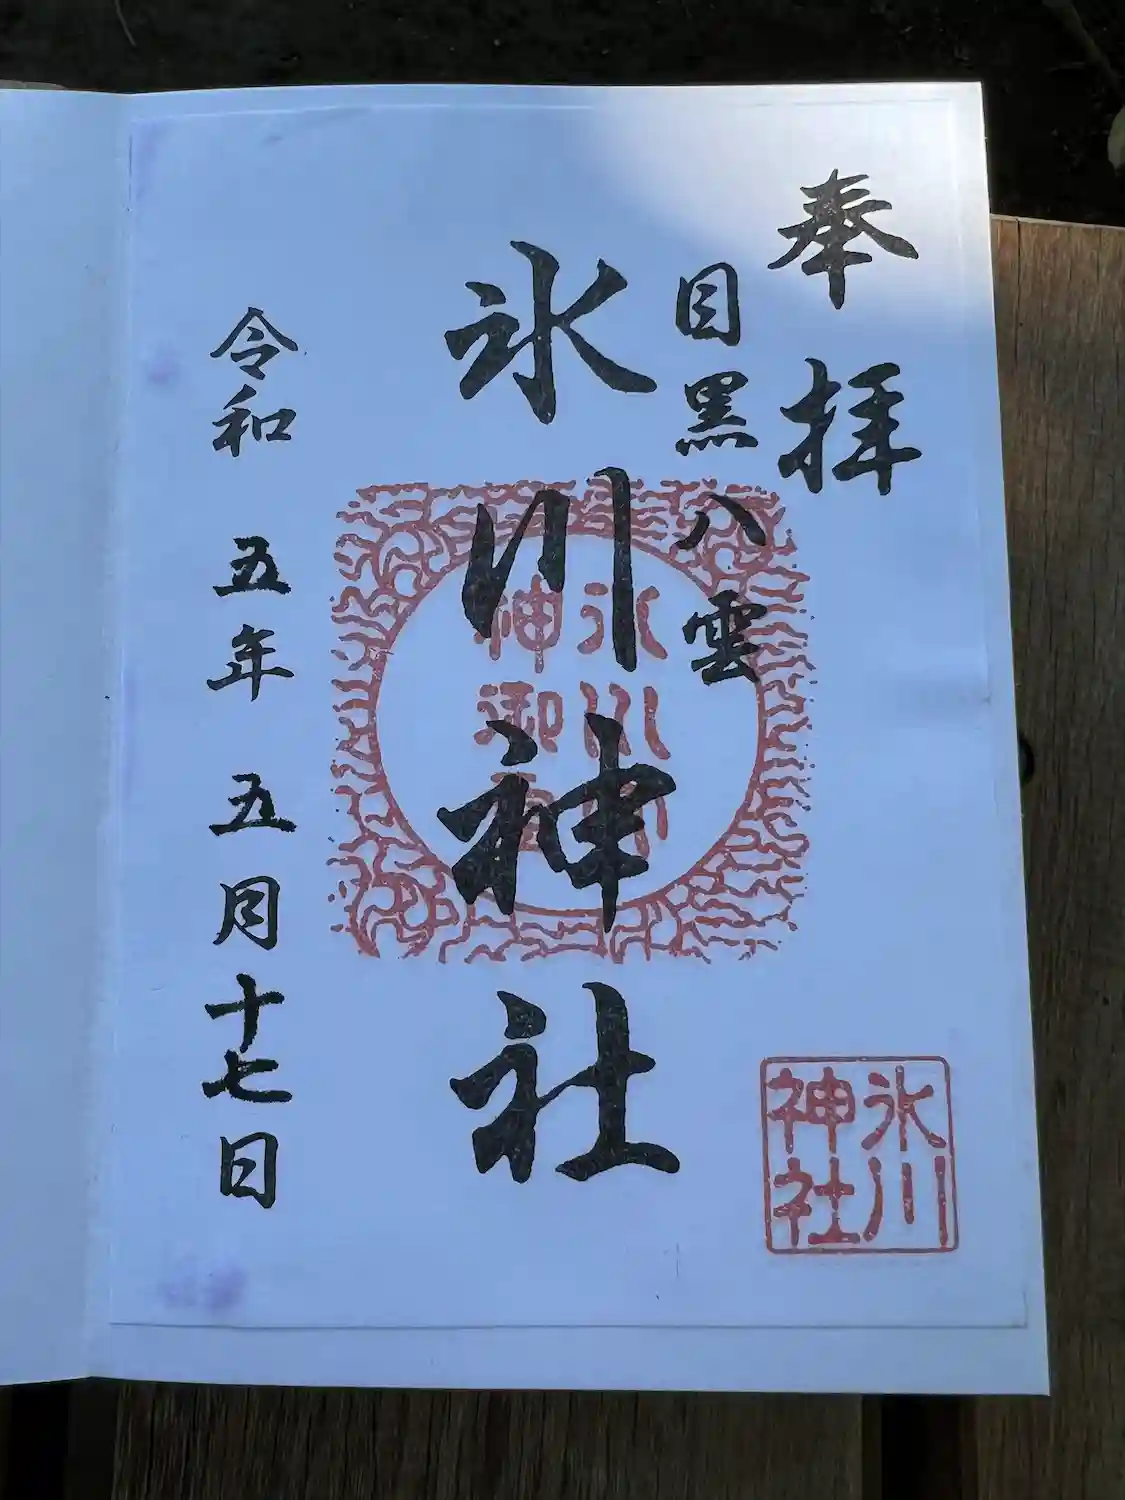 奉拝
目黒八雲
氷川神社
氷川
神御
氷川
神社
令和 五年 五月十七日